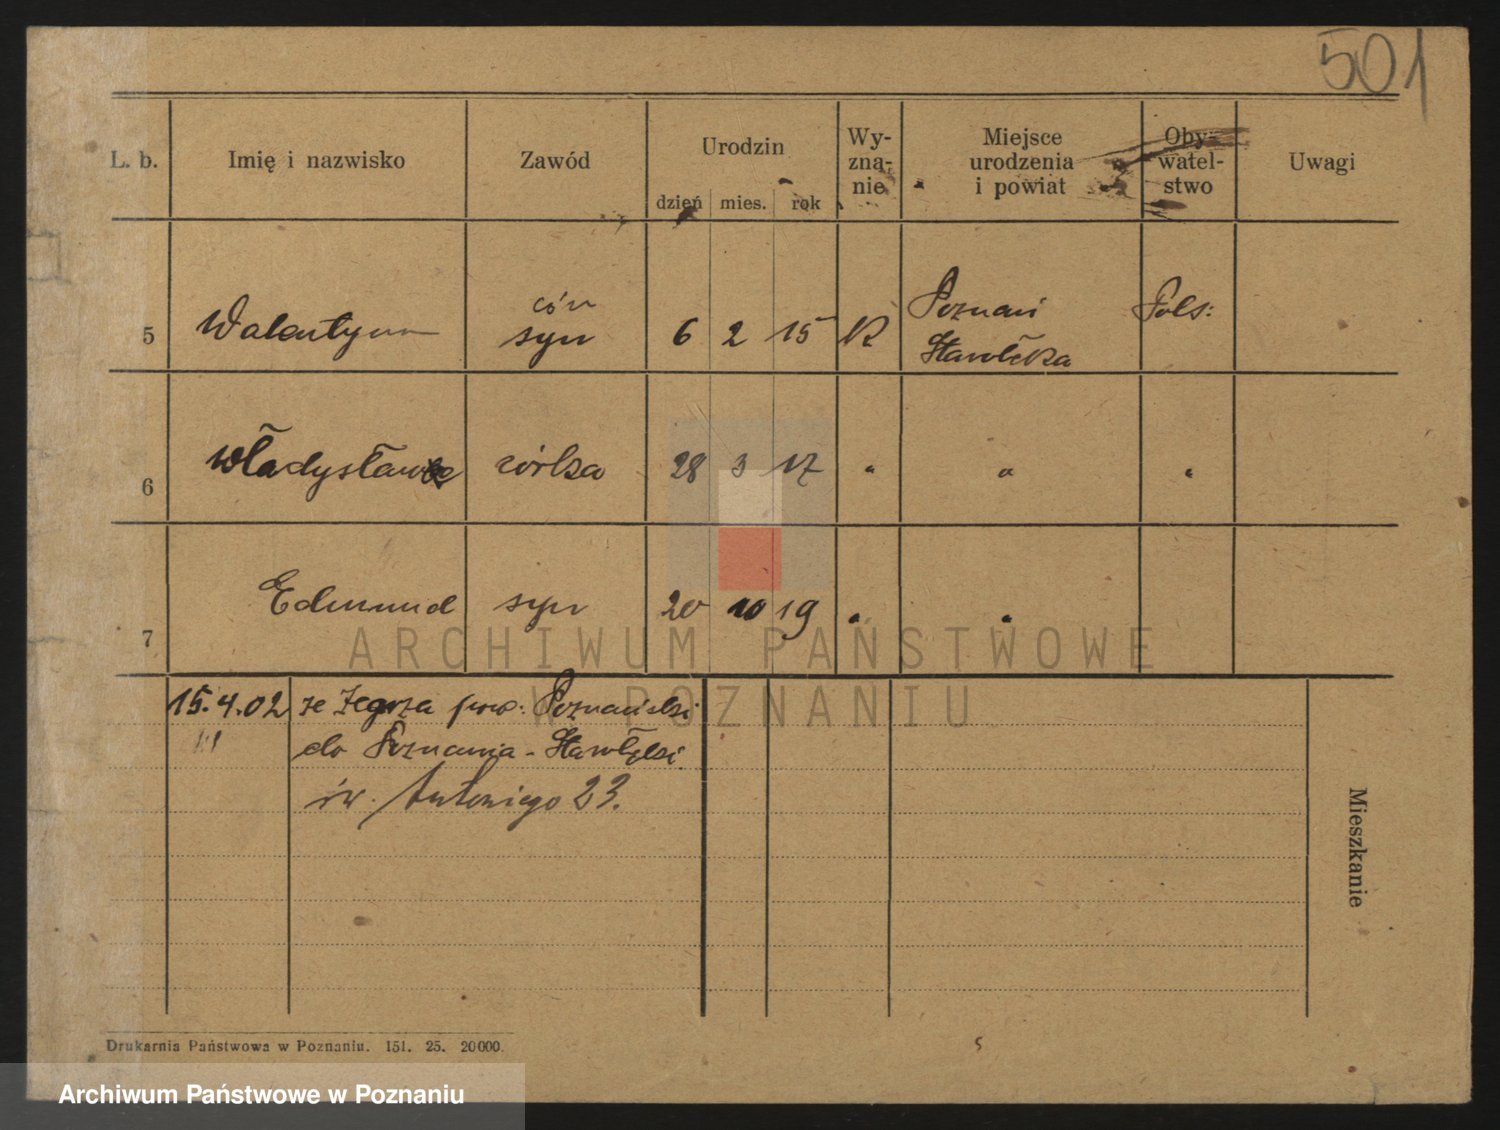 501
L. b. Imię i nazwisko Zawód Urodzin dzień mies. rok Wy-zna-nie Miejsce urodzenia i powiat Oby-watel-stwo Uwagi
5 Walentyna córk syn 6 2 15 K Poznań Starołęka Pols:
6 Władysława córka 28 3 17 " " "
7 Edmund syn 20 10 19 " "
15.4.02 ze Żegrza pow: Poznański
do Poznania - Starołęki
św. Antoniego 23.
Mieszkanie
Drukarnia Państwowa w Poznaniu. 151. 25. 20000.
ARCHIWUM PAŃSTWOWE
W POZNANIU
Archiwum Państwowe w Poznaniu